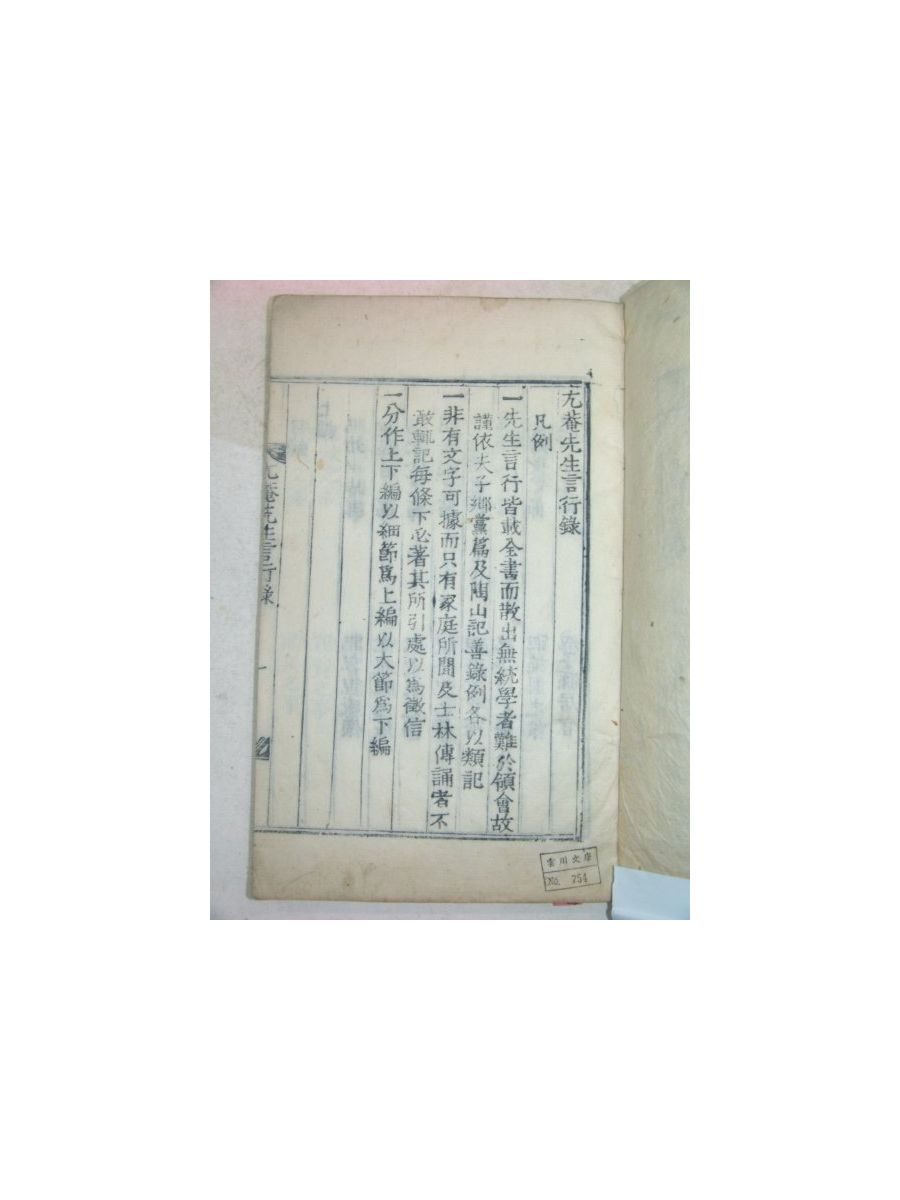 尤菴先生言行錄
凡例
一先生言行皆載全書而散出無統學者難於領會故
謹依夫子鄕黨篇及陶山記善錄例各以類記
一非有文字可據而只有家庭所聞及士林傳誦者不
敢輒記每條下必著其所引處以爲徵信
一分作上下編以細節爲上編以大節爲下編
尤菴先生言行錄
一
雲川文庫
No. 754